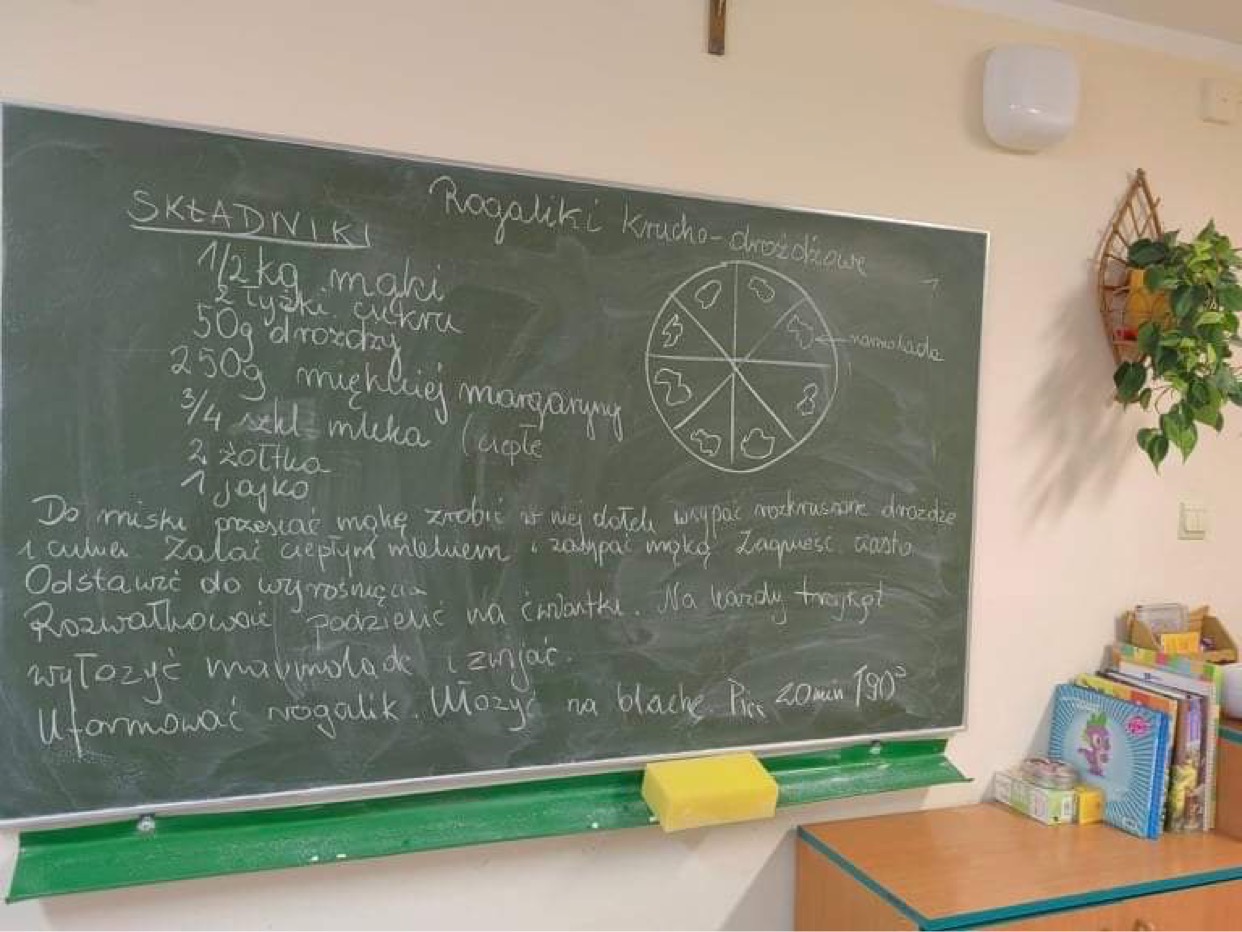 Rogaliki krucho-drożdżowe
SKŁADNIKI
1/2 kg mąki
2 łyżki cukru
50g drożdży
250g miękkiej margaryny
3/4 szkl mleka (ciepłe
2 żółtka
1 jajko
marmolada
Do miski przesiać mąkę zrobić w niej dołek wsypać rozkruszone drożdże
i cukier Zalać ciepłym mlekiem i zasypać mąką Zagnieść ciasto
Odstawić do wyrośnięcia
Rozwałkować podzielić na ćwiartki. Na każdy trójkąt
wyłożyć marmoladę i zwijać.
Uformować rogalik. Ułożyć na blachę Piec 20 min 190°